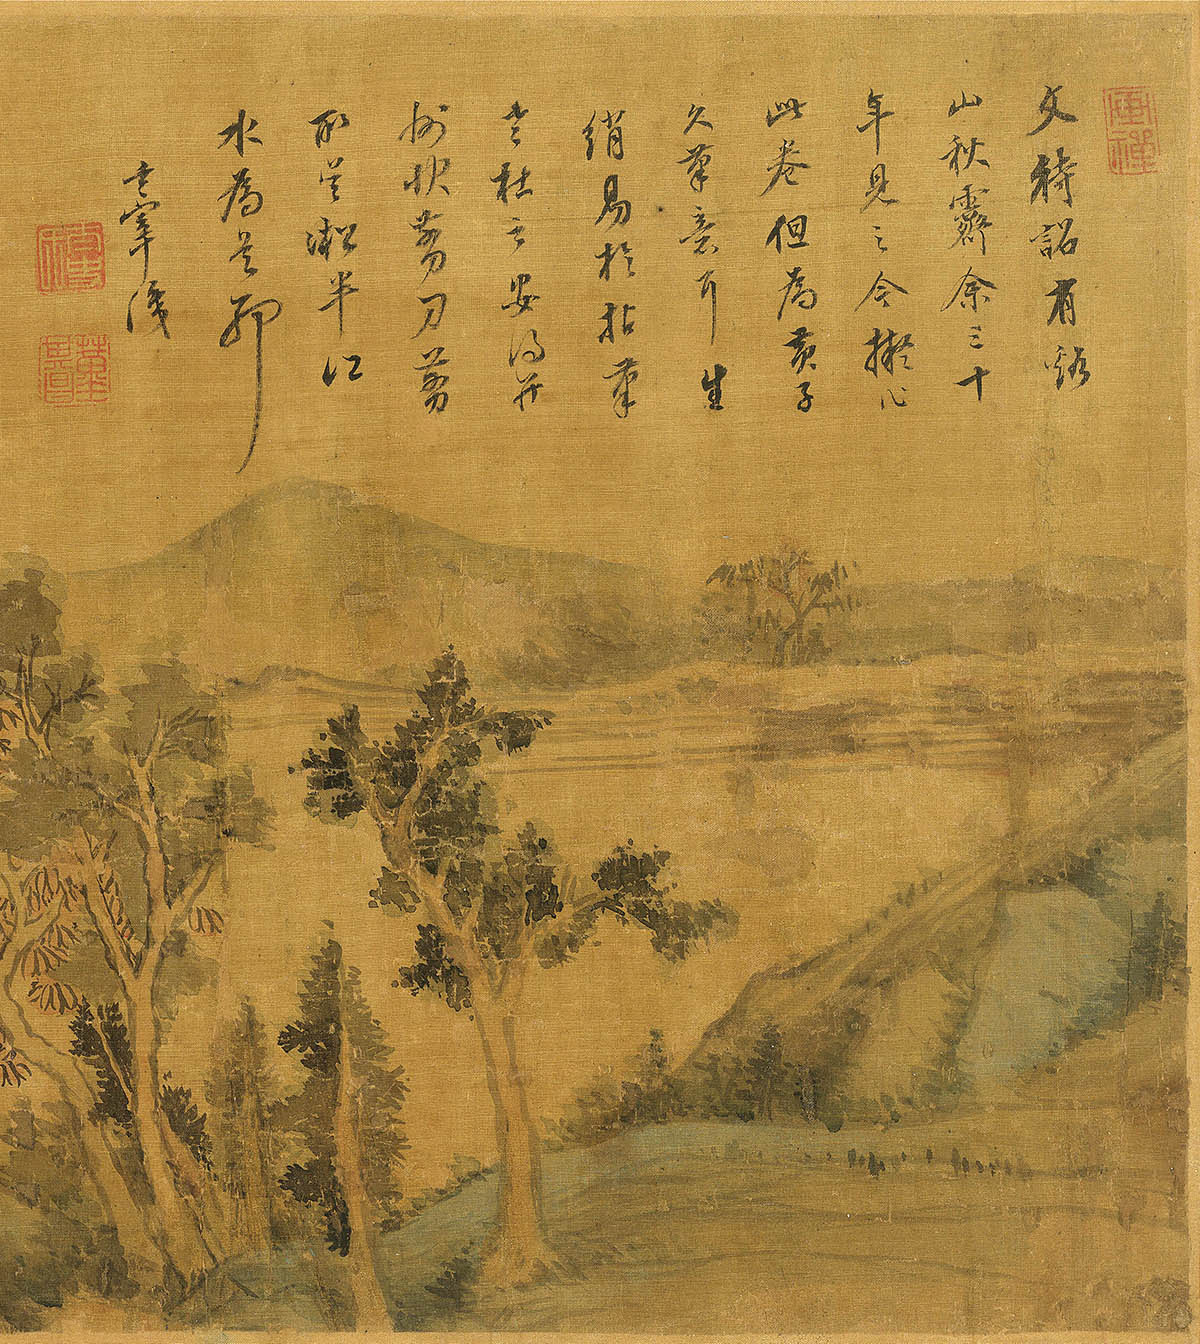 畫禪
文待詔有谿
山秋霽余三十
年見之今擬
此卷但為黃子
久筆意耳生
綃易於拈筆
老杜云安得并
州快剪刀剪
取吳淞半江
水為是耶
玄宰識
董其昌